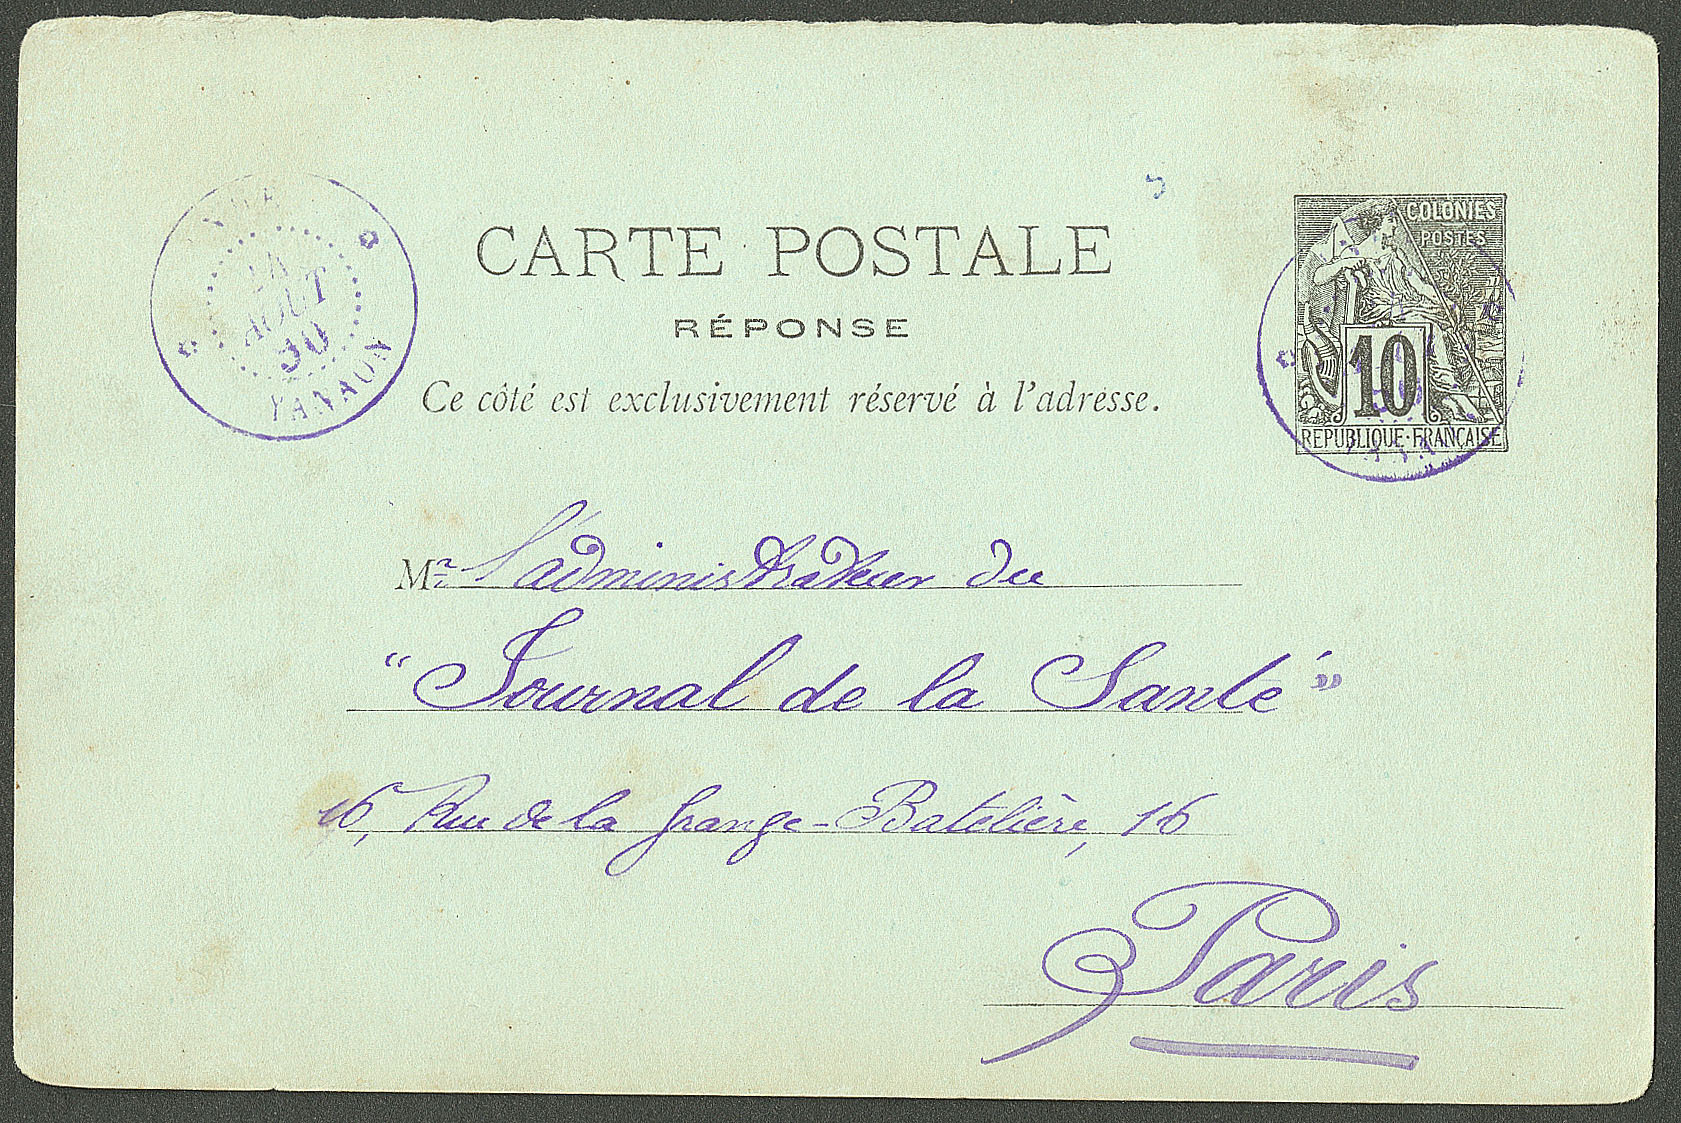 CARTE POSTALE
RÉPONSE
Ce côté est exclusivement réservé à l'adresse.
COLONIES
POSTES
10
REPUBLIQUE·FRANÇAISE
AOUT
90
YANAON
Mr l'administrateur du
"Journal de la Santé"
16, Rue de la Grange-Batelière, 16
Paris